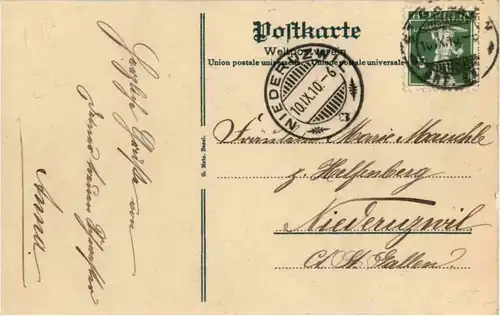 Postkarte
Weltpostverein
Union postale universelle. Unione postale universale
Herzliche Grüße von
Deiner treuen Schwester
Anna.
G. Metz, Basel.
NIEDERUZWIL
10.IX.10.-6
HELVETIA
Fräulein Marie Mauchle
z. Helfenberg
Niederuzwil
Ct. St. Gallen.